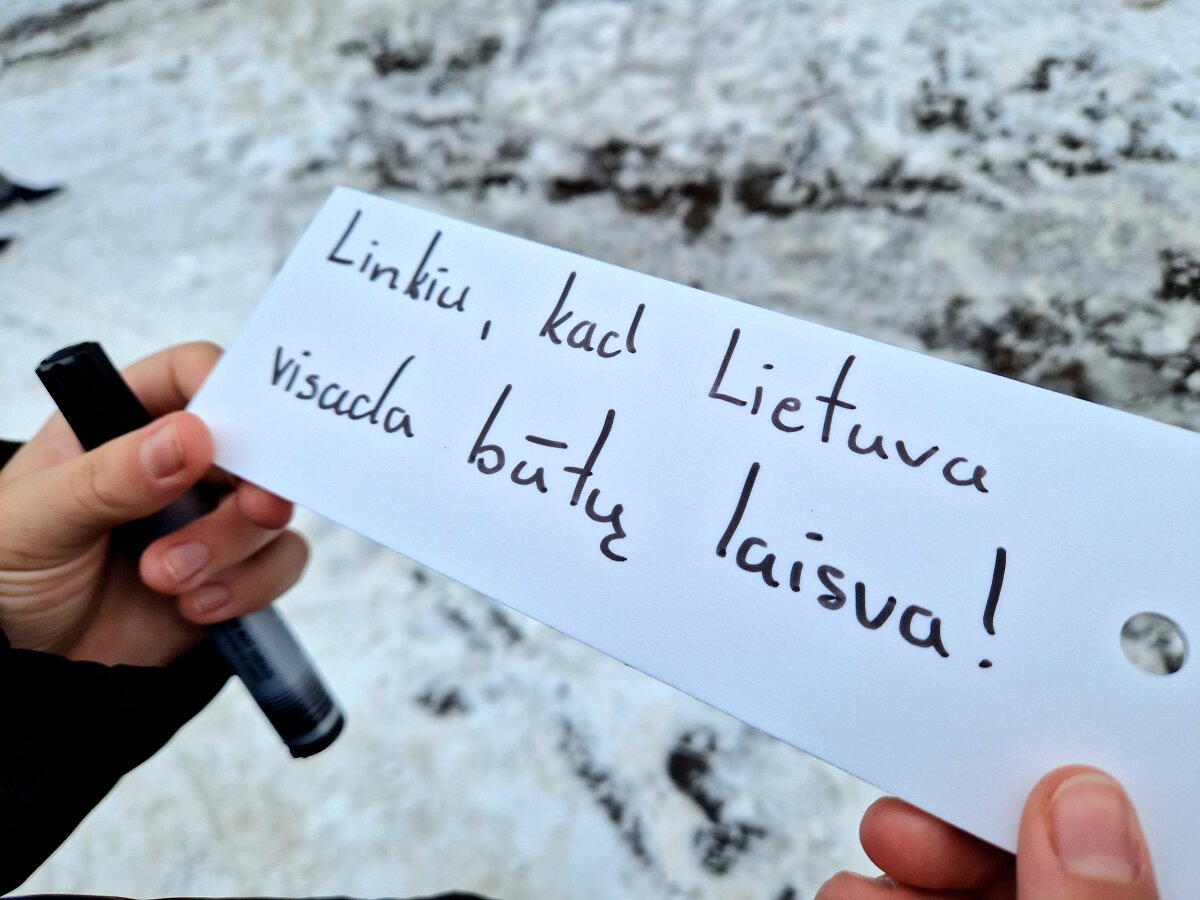 Linkiu, kad Lietuva
visada būtų laisva!